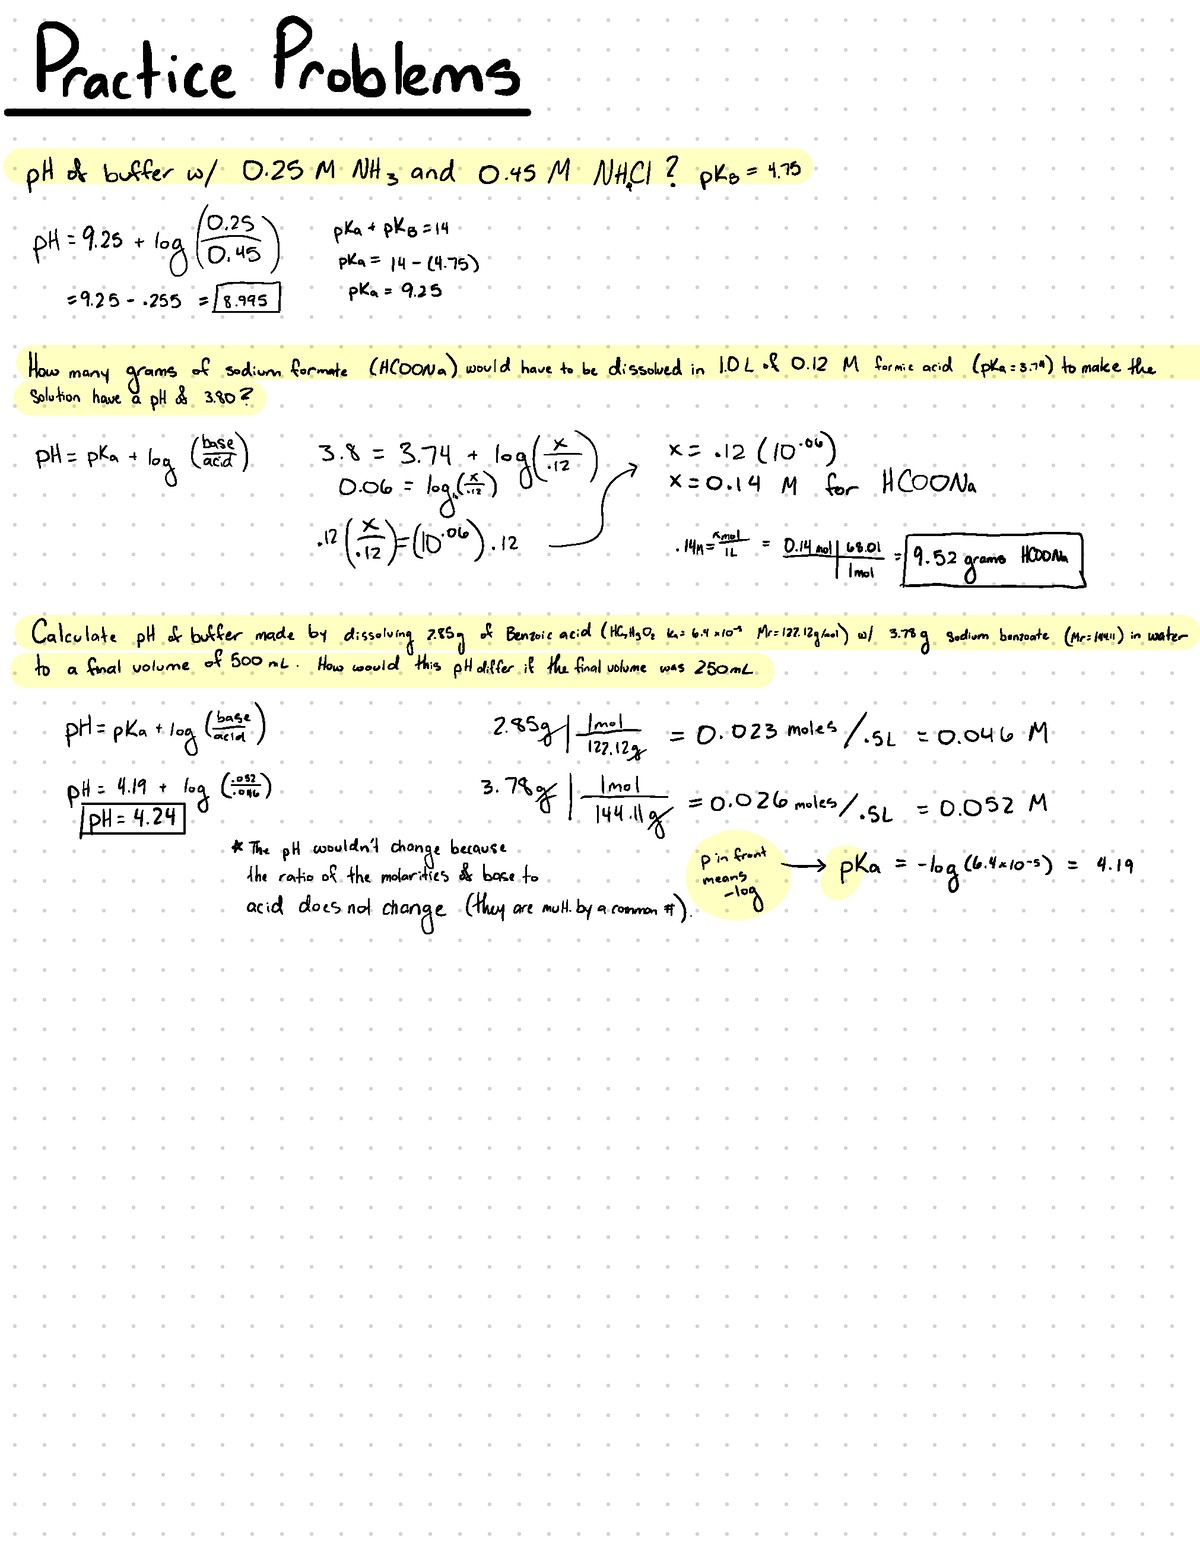 Practice Problems
pH of buffer w/ 0.25 M NH3 and 0.45 M NH4Cl? pKB = 4.75
pH = 9.25 + log (0.25/0.45)
= 9.25 - .255 = 8.995
pKa + pKB = 14
pKa = 14 - (4.75)
pKa = 9.25
How many grams of sodium formate (HCOONa) would have to be dissolved in 1.0 L of 0.12 M formic acid (pKa = 3.74) to make the
Solution have a pH of 3.80?
pH = pKa + log (base/acid)
3.8 = 3.74 + log(x/.12)
0.06 = log(x/.12)
.12 (x/.12) = (10^.06) .12
x = .12 (10^.06)
x = 0.14 M for HCOONa
.14M = x mol/1L = 0.14 mol | 68.01 / 1 mol = 9.52 grams HCOONa
Calculate pH of buffer made by dissolving 2.85g of Benzoic acid (HC7H5O2 Ka = 6.4 x10^-5 Mr = 122.12g/mol) w/ 3.78 g Sodium benzoate (Mr = 144.11) in water
to a final volume of 500 mL. How would this pH differ if the final volume was 250mL.
pH = pKa + log (base/acid)
pH = 4.19 + log (.052/.046)
pH = 4.24
2.85g | 1mol / 122.12g = 0.023 moles / .5L = 0.046 M
3.78g | 1mol / 144.11g = 0.026 moles / .5L = 0.052 M
* The pH wouldn't change because
the ratio of the molarities of base to
acid does not change (they are mult. by a common #).
p in front
means
-log
→ pKa = -log (6.4x10^-5) = 4.19